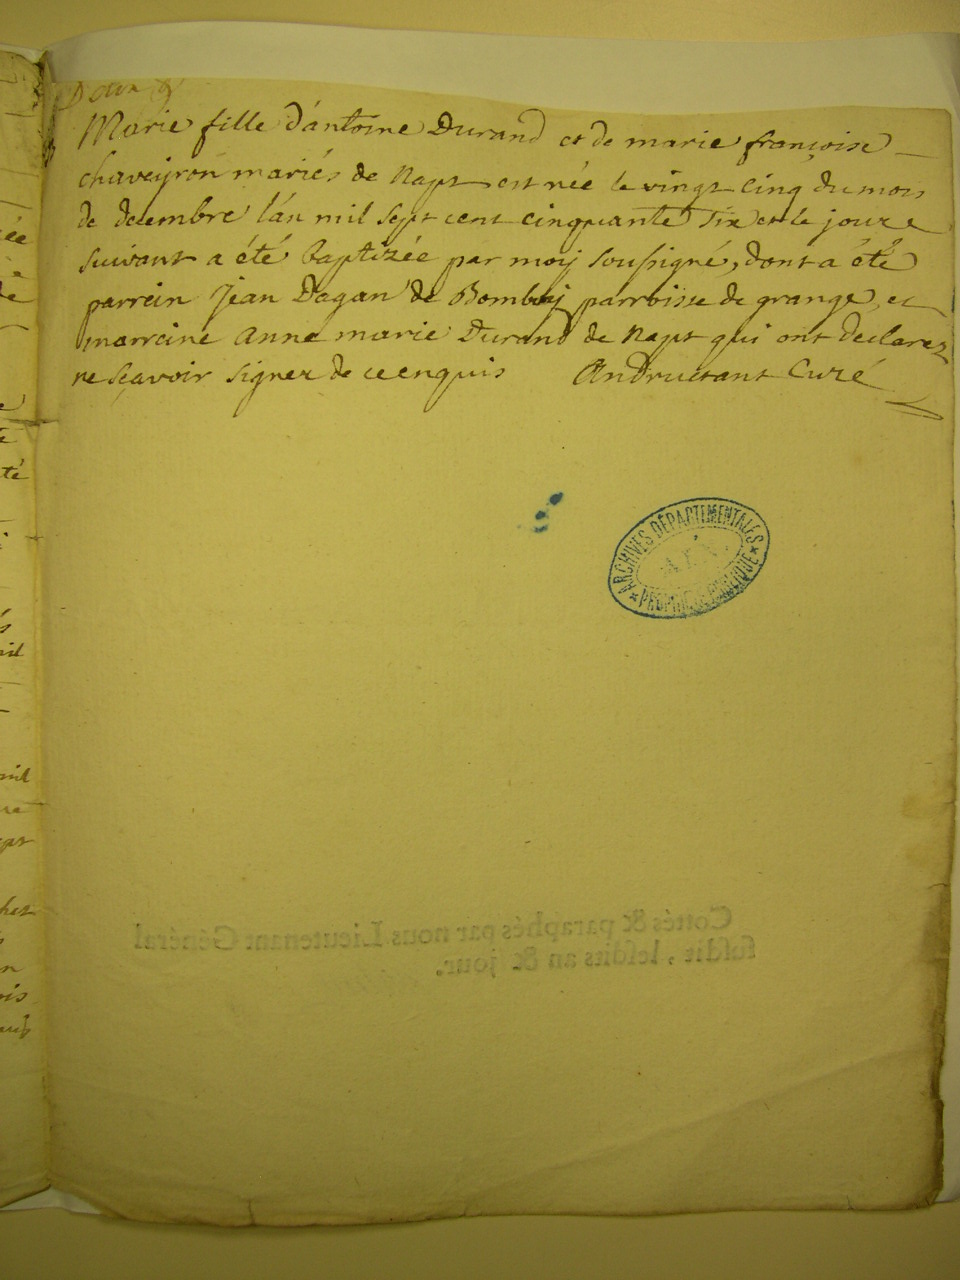 Marie fille d'antoine Durand et de marie françoise
chaveyron mariés de Napt est née le vingt cinq du mois
de decembre l'an mil sept cent cinquante six et le jour
suivant a été baptizée par moy soussigné, dont a été
parrein Jean Dagan de Bomboy parroisse de grange, et
marreine Anne marie Durand de Napt qui ont declarez
ne sçavoir signer de ce enquis Andruetant Curé
ARCHIVES DÉPARTEMENTALES
AIN
PROPRIÉTÉ PUBLIQUE
Cottés & paraphés par nous Lieutenant Général
susdit, lesdits an & jour.